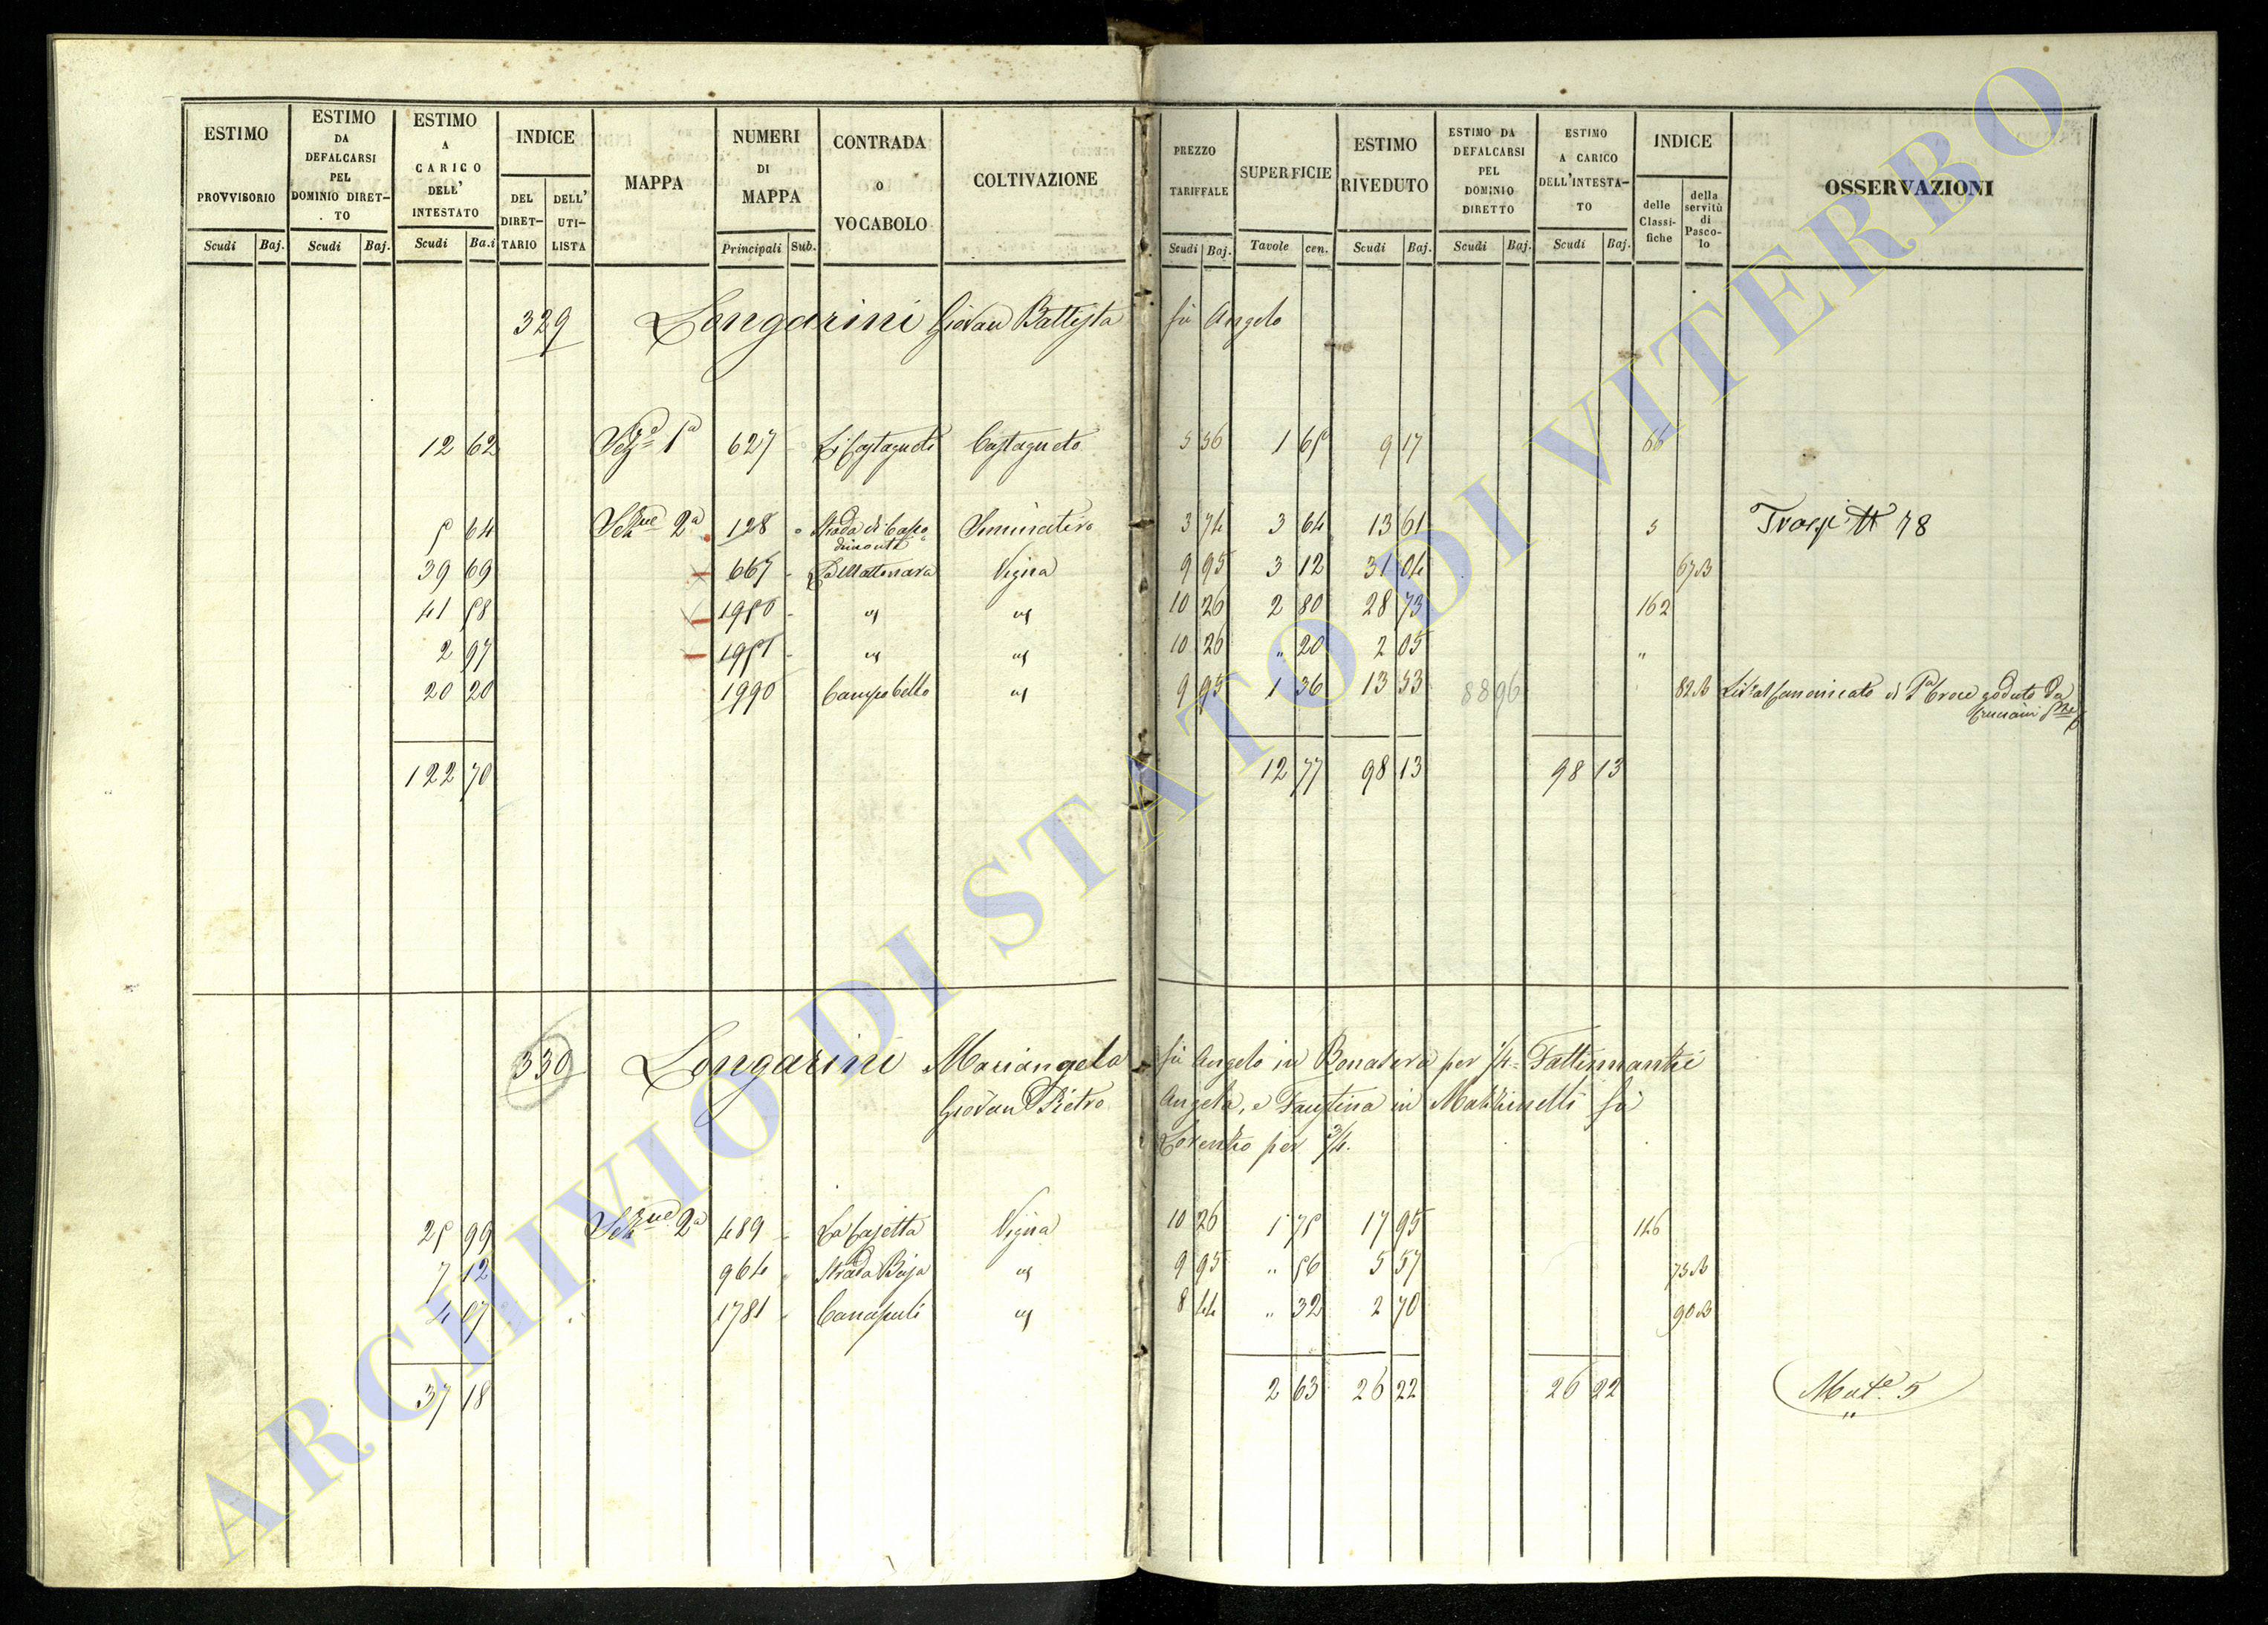 ESTIMO PROVVISORIO
ESTIMO DA DEFALCARSI PEL DOMINIO DIRET-TO
ESTIMO A CARICO DELL' INTESTATO
INDICE
DEL DIRET-TARIO
DELL' UTI-LISTA
MAPPA
NUMERI DI MAPPA
CONTRADA O VOCABOLO
COLTIVAZIONE
PREZZO TARIFFALE
SUPERFICIE
ESTIMO RIVEDUTO
ESTIMO DA DEFALCARSI PEL DOMINIO DIRETTO
ESTIMO A CARICO DELL'INTESTA-TO
INDICE
delle Classi-fiche
della servitù di Pasco-lo
OSSERVAZIONI
Scudi Baj. Scudi Baj. Scudi Ba.i Principali Sub. Scudi Baj. Tavole cen. Scudi Baj. Scudi Baj. Scudi Baj.
329 Longarini Giovan Battista fù Angelo
12 62 Sez.e 1a 627 Li Castagneti Castagneto 5 56 1 65 9 17 66
5 64 Sezne 2a 128 Strada di Capo dimonte Seminativo 3 74 3 64 13 61 5
39 69 667 Vigna 9 95 3 12 31 04 67 B
41 58 1950 " " 10 26 2 80 28 73 162
2 97 1951 " " 10 26 " 20 2 05 "
20 20 1990 Campobello " 9 95 1 36 13 53 88 96 82 B Liv.o al Canonicato di S.a Croce goduto da
122 70 12 77 98 13 98 13
330 Longarini Mariangela fù Angelo in Bonavera per 1/4 = Fattirmantri
Giovan Pietro Angela, e Faustina in Mazzinelli fù
Lorenzo per 3/4.
25 99 Sezne 2a 489 La Casetta Vigna 10 26 1 75 17 95 146
7 12 964 Strada Baja " 9 95 " 56 5 57 73 B
4 07 1781 Canapuli " 8 44 " 32 2 70 90 B
37 18 2 63 26 22 26 22 Mut.e 5
ARCHIVIO DI STATO DI VITERBO